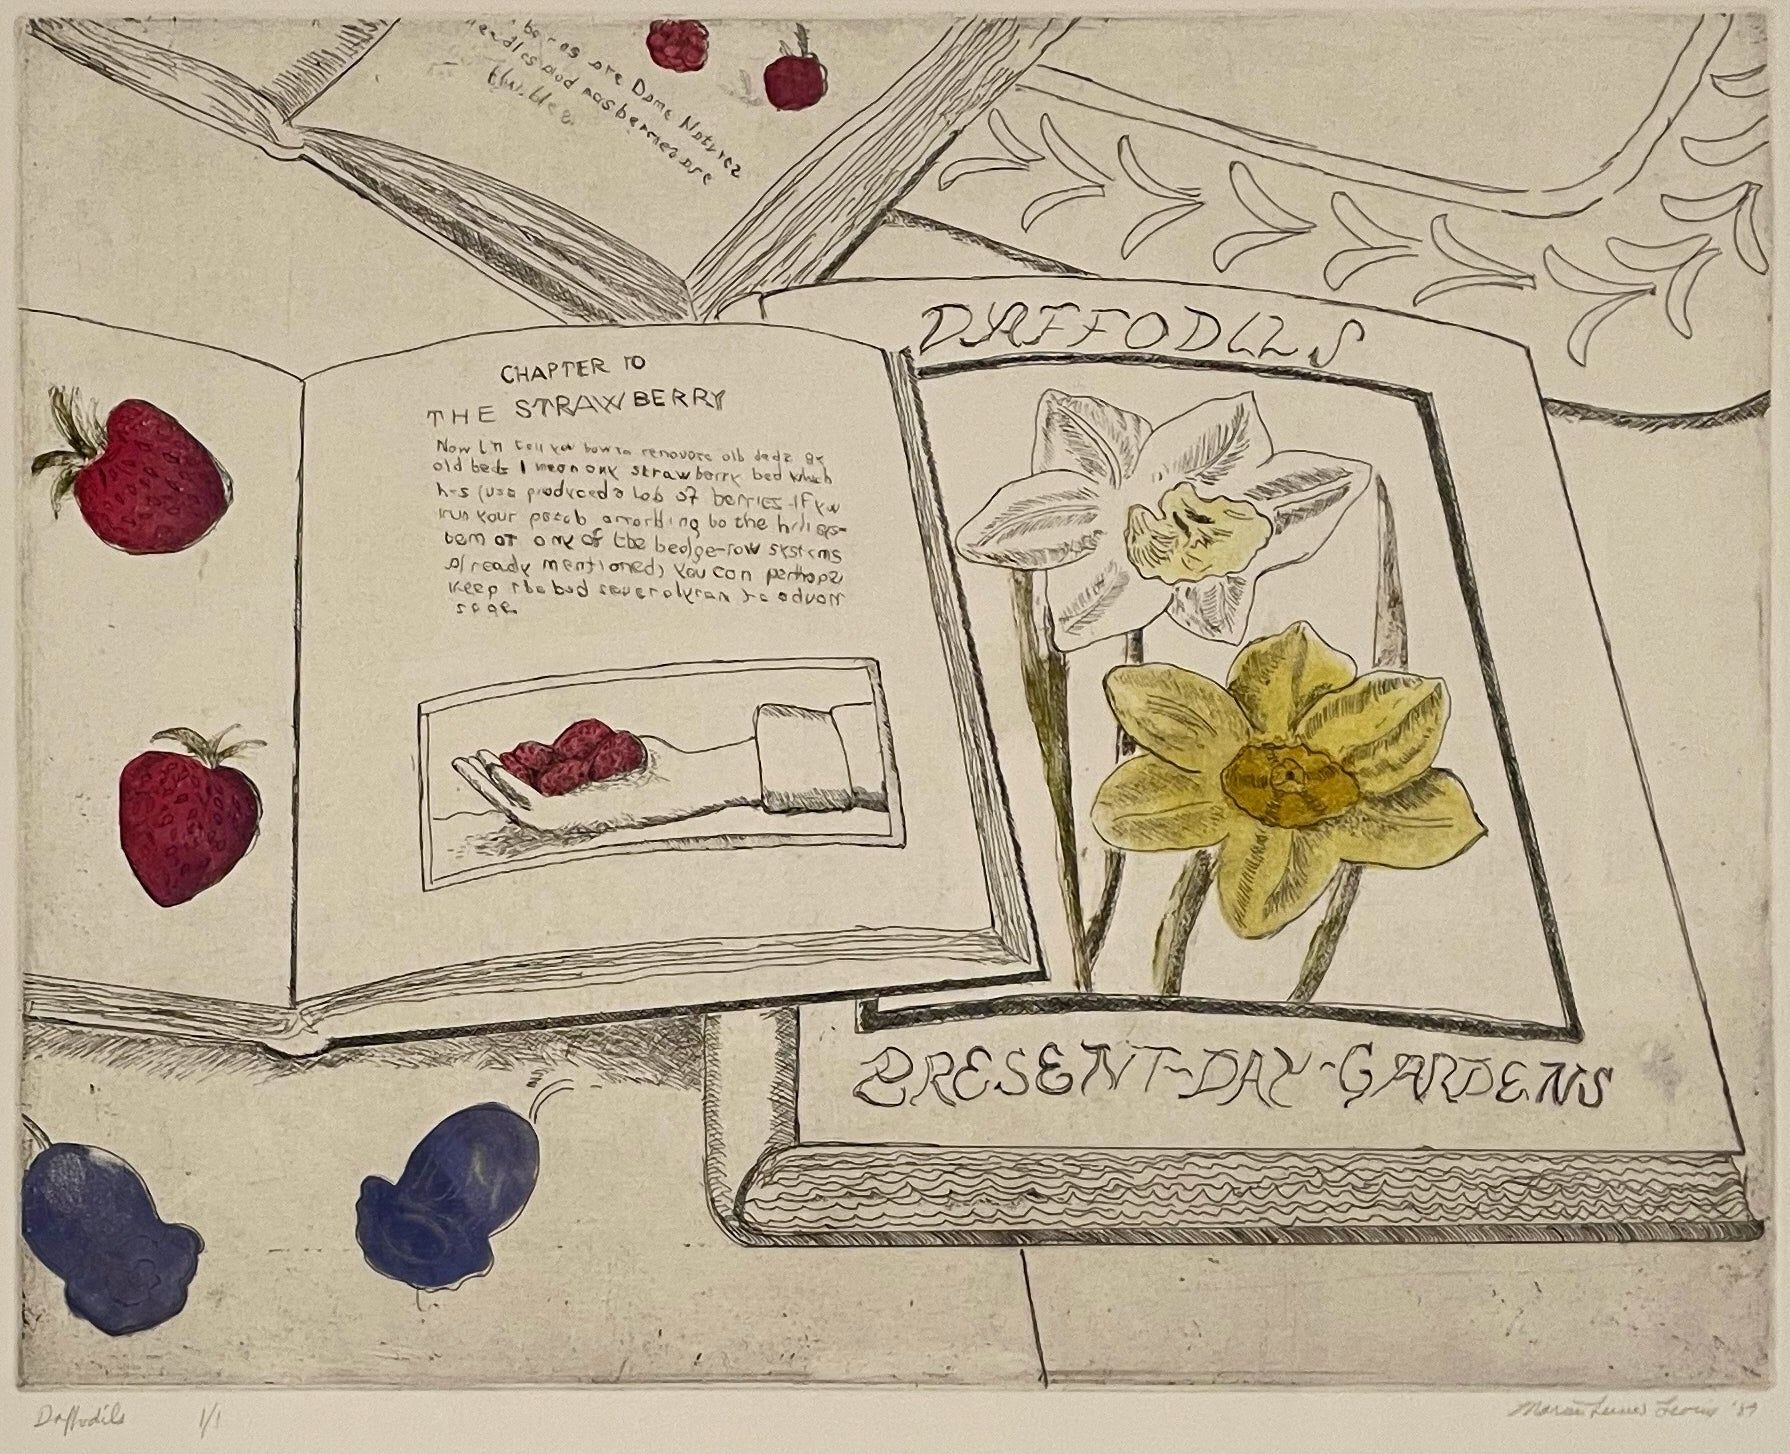 bornes are Dame Natures
needles and rasberries are
thimbles
DAFFODILS
CHAPTER 10
THE STRAWBERRY
Now I'll tell you how to renovate old beds. By
old beds I mean any strawberry bed which
has produced a lob of berries. If you
run your patch according to the hill sys-
tem or any of the hedge-row systems
already mentioned, you can perhaps
keep the bed several years to advan
tage.
PRESENT-DAY-GARDENS
Daffodils 1/1
'89